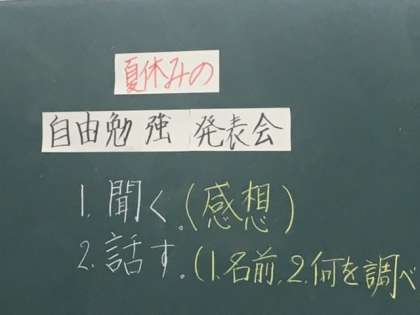 夏休みの
自由勉強 発表会
1. 聞く。(感想)
2. 話す。(1.名前、2.何を調べ